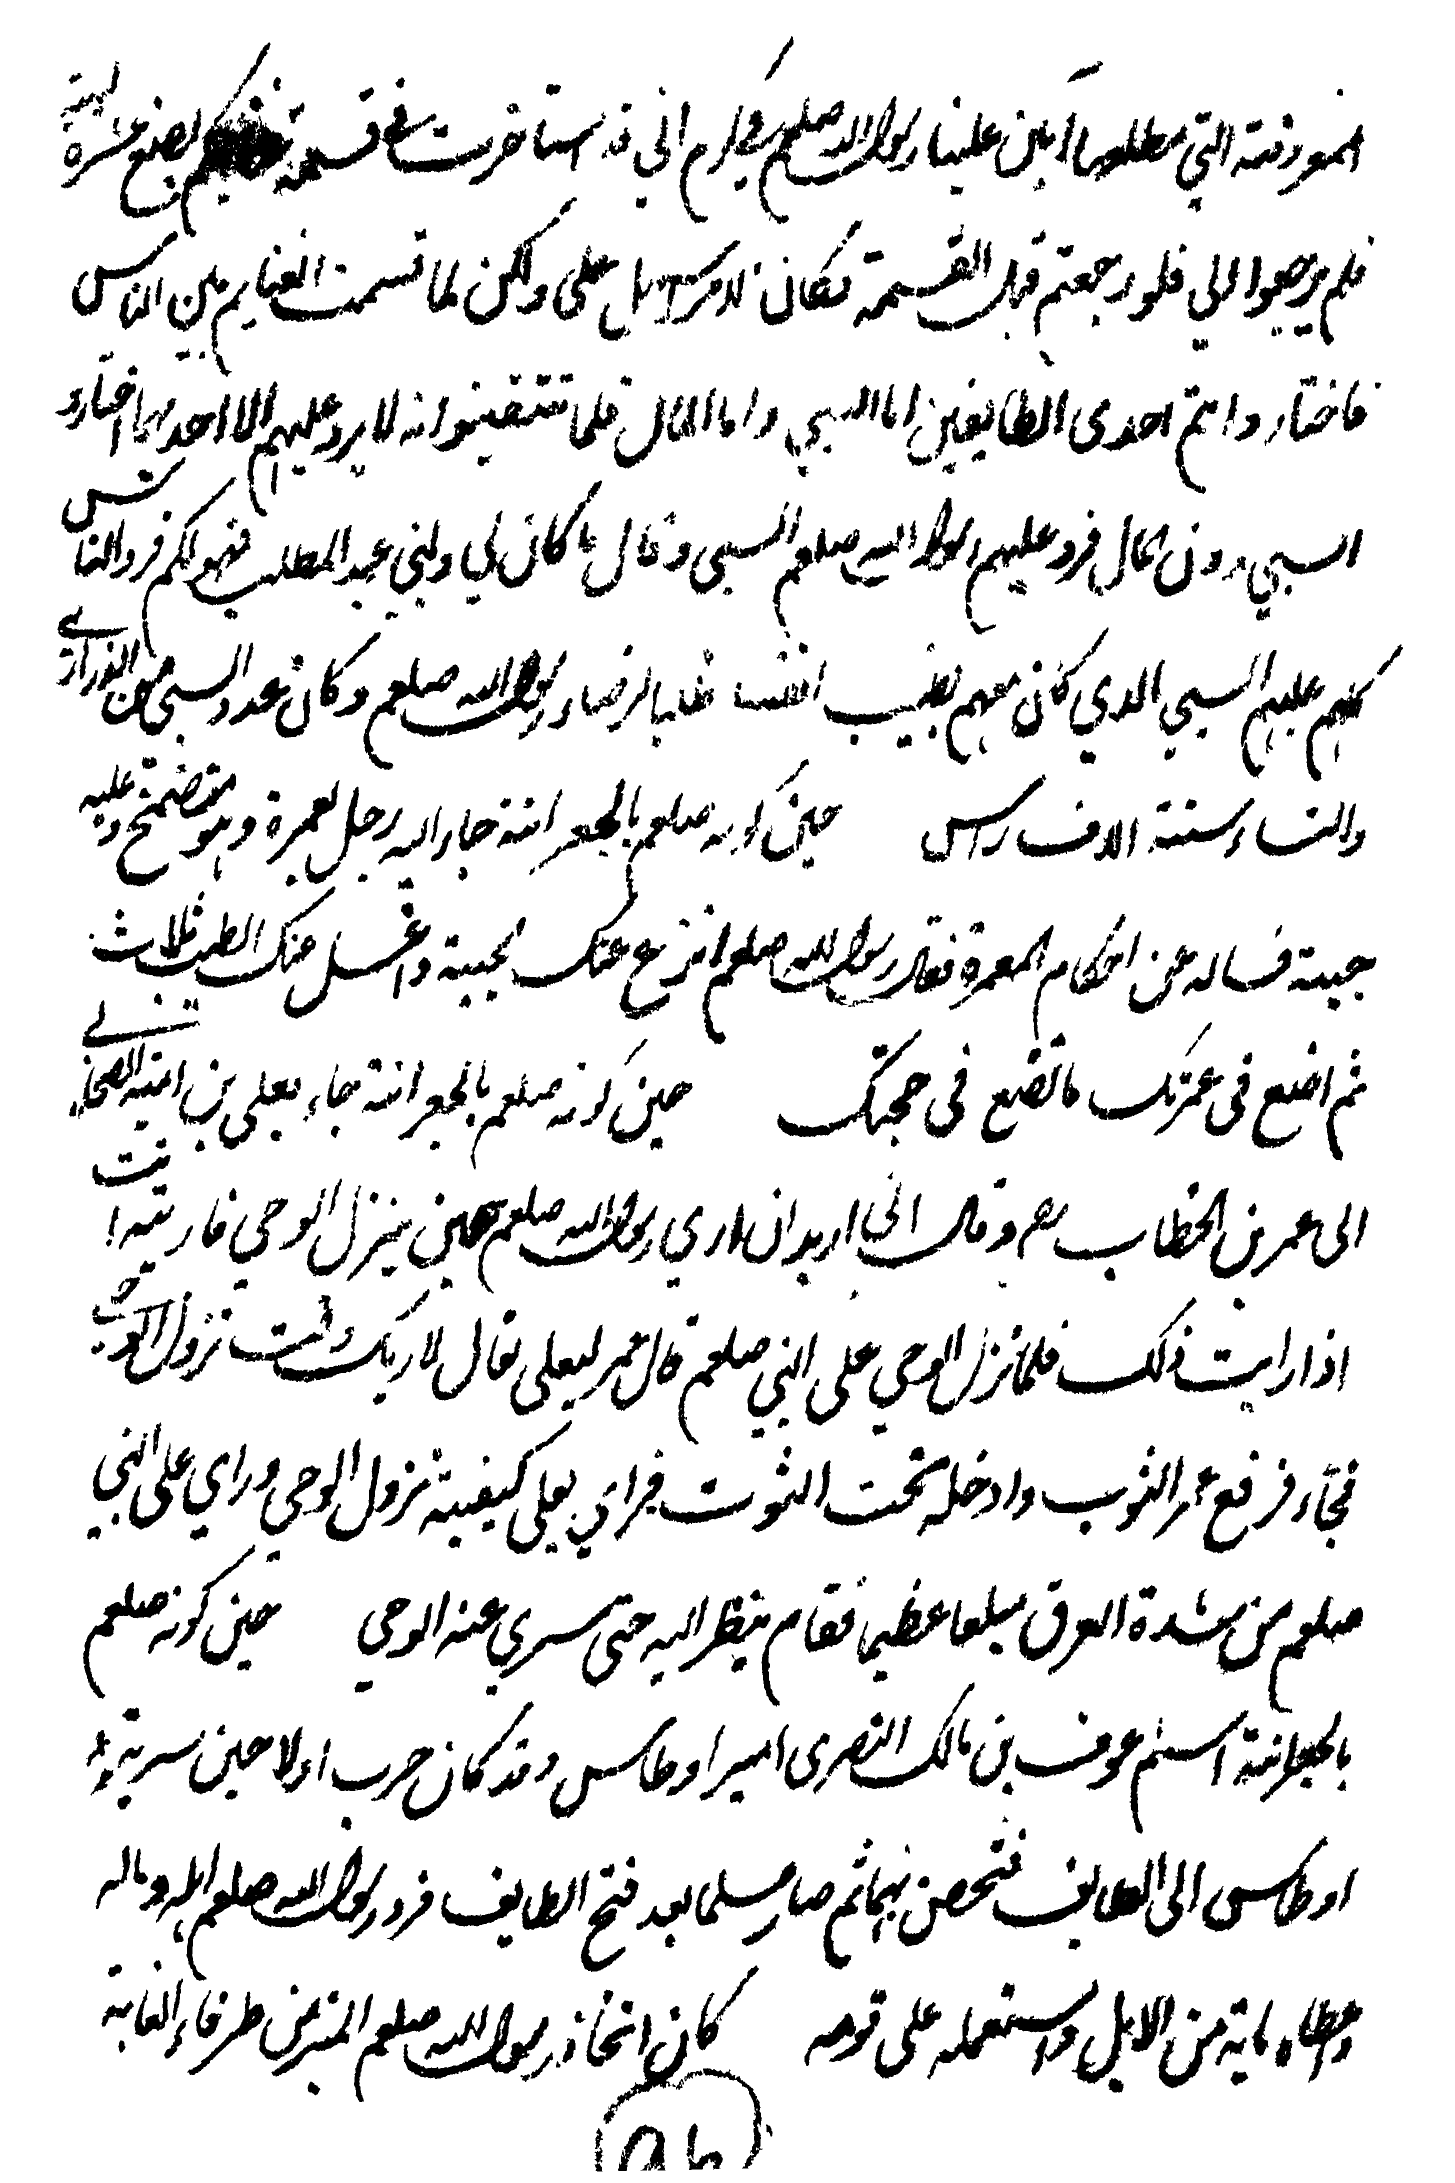 المعروفة التي مطلعها امنن علينا رسول الله صلعم في كرم اني قد استاخرت في قسمة غنايمكم بضع عشرة ليلة
فلم ترجعوا الي فلو رجعتم قبل القسمة لكان الامر اسهل علي ولكن لما قسمت الغنايم بين الناس
فاختاروا انتم احدى الطايفتين اما السبي واما المال فلما تيقنوا انه لا يرد عليهم الا احديهما اختاروا
السبي دون المال فرد عليهم رسول الله صلعم السبي وقال ما كان لي ولبني عبد المطلب فهو لكم فرد الناس
كلهم عليهم السبي الذي كان معهم بطيب انفسنا طلبا لرضاء رسول الله صلعم وكان عدد السبي من الذراري
والنساء ستة الاف راس حين كونه صلعم بالجعرانة جاء اليه رجل لعمرة وهو متضمخ وعليه
جبة فساله عن احكام العمرة فقال رسول الله صلعم انزع عنك الجبة واغسل عنك الطيب ثلاث
ثم اصنع في عمرتك ما تصنع في حجتك حين كونه صلعم بالجعرانة جاء يعلى بن امية الصحابي
الى عمر بن الخطاب رضه وقال اني اريد ان اري رسول الله صلعم حين ينزل الوحي فاريته انت
اذا رايت ذلك فلما نزل الوحي على النبي صلعم قال عمر ليعلى تعال لاريك وقت نزول الوحي
فجاء فرفع عمر الثوب وادخله تحت الثوت فراي يعلى كيفية نزول الوحي وراي على النبي
صلعم من شدة العرق مبلغا عظيما فقام ينظر اليه حتى سري عنه الوحي حين كونه صلعم
بالجعرانة اسلم عوف بن مالك النصرى امير اوطاس وقد كان حرب اولا حين سرية
اوطاس الى الطايف فتحصن بها ثم صار مسلما بعد فتح الطايف فرد رسول الله صلعم اهله وماله
واعطاه ماية من الابل واستعمله على قومه كان اتخاذ رسول الله صلعم المنبر من طرفاء الغابة